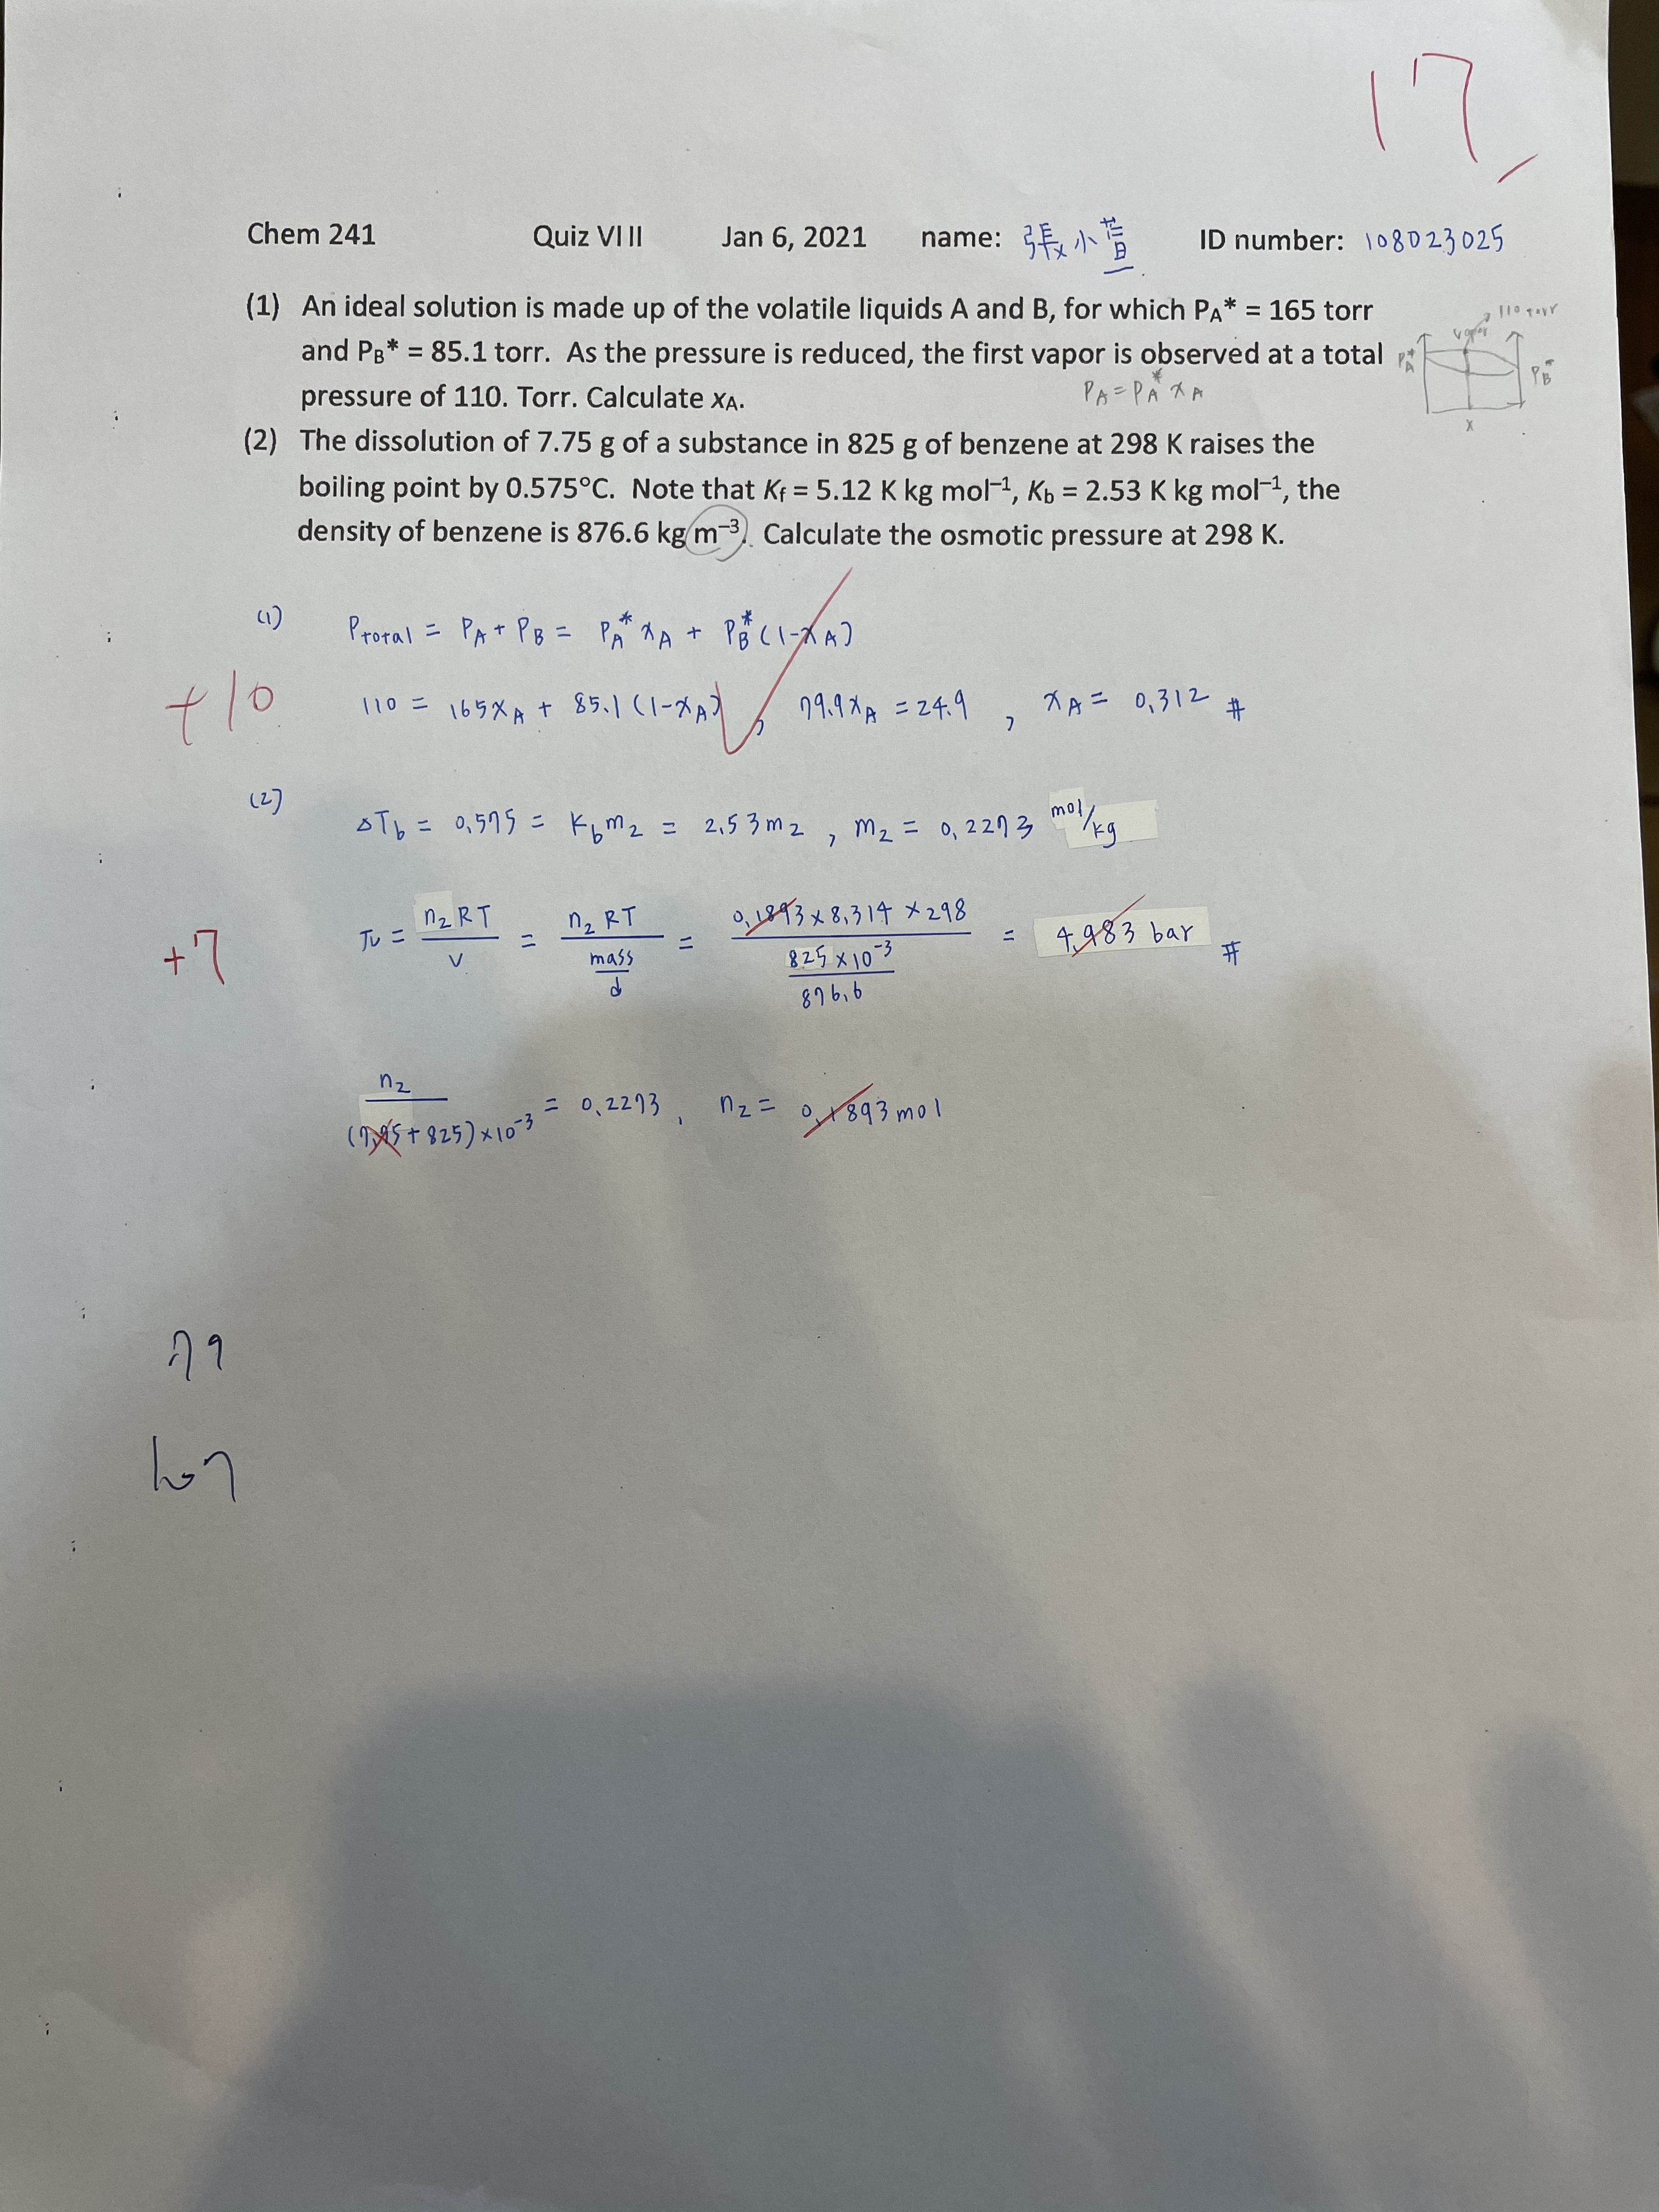 17
Chem 241 Quiz VIII Jan 6, 2021 name: 張小萱 ID number: 108023025
(1) An ideal solution is made up of the volatile liquids A and B, for which PA* = 165 torr
and PB* = 85.1 torr. As the pressure is reduced, the first vapor is observed at a total
pressure of 110. Torr. Calculate xA.
PA = PA* xA
vapor 110 torr
PA* PB*
x
(2) The dissolution of 7.75 g of a substance in 825 g of benzene at 298 K raises the
boiling point by 0.575°C. Note that Kf = 5.12 K kg mol–1, Kb = 2.53 K kg mol–1, the
density of benzene is 876.6 kg m–3. Calculate the osmotic pressure at 298 K.
(1) Ptotal = PA + PB = PA* xA + PB* (1-xA)
+10 110 = 165xA + 85.1 (1-xA) , 79.9xA = 24.9 , xA = 0.312 #
(2) ΔTb = 0.575 = Kb m2 = 2.53 m2 , m2 = 0.2273 mol/kg
+7 π = n2RT / V = n2RT / (mass / d) = 0.1893 × 8.314 × 298 / (825 × 10-3 / 876.6) = 4.983 bar #
n2 / (7.75 + 825) × 10-3 = 0.2273 , n2 = 0.1893 mol
79